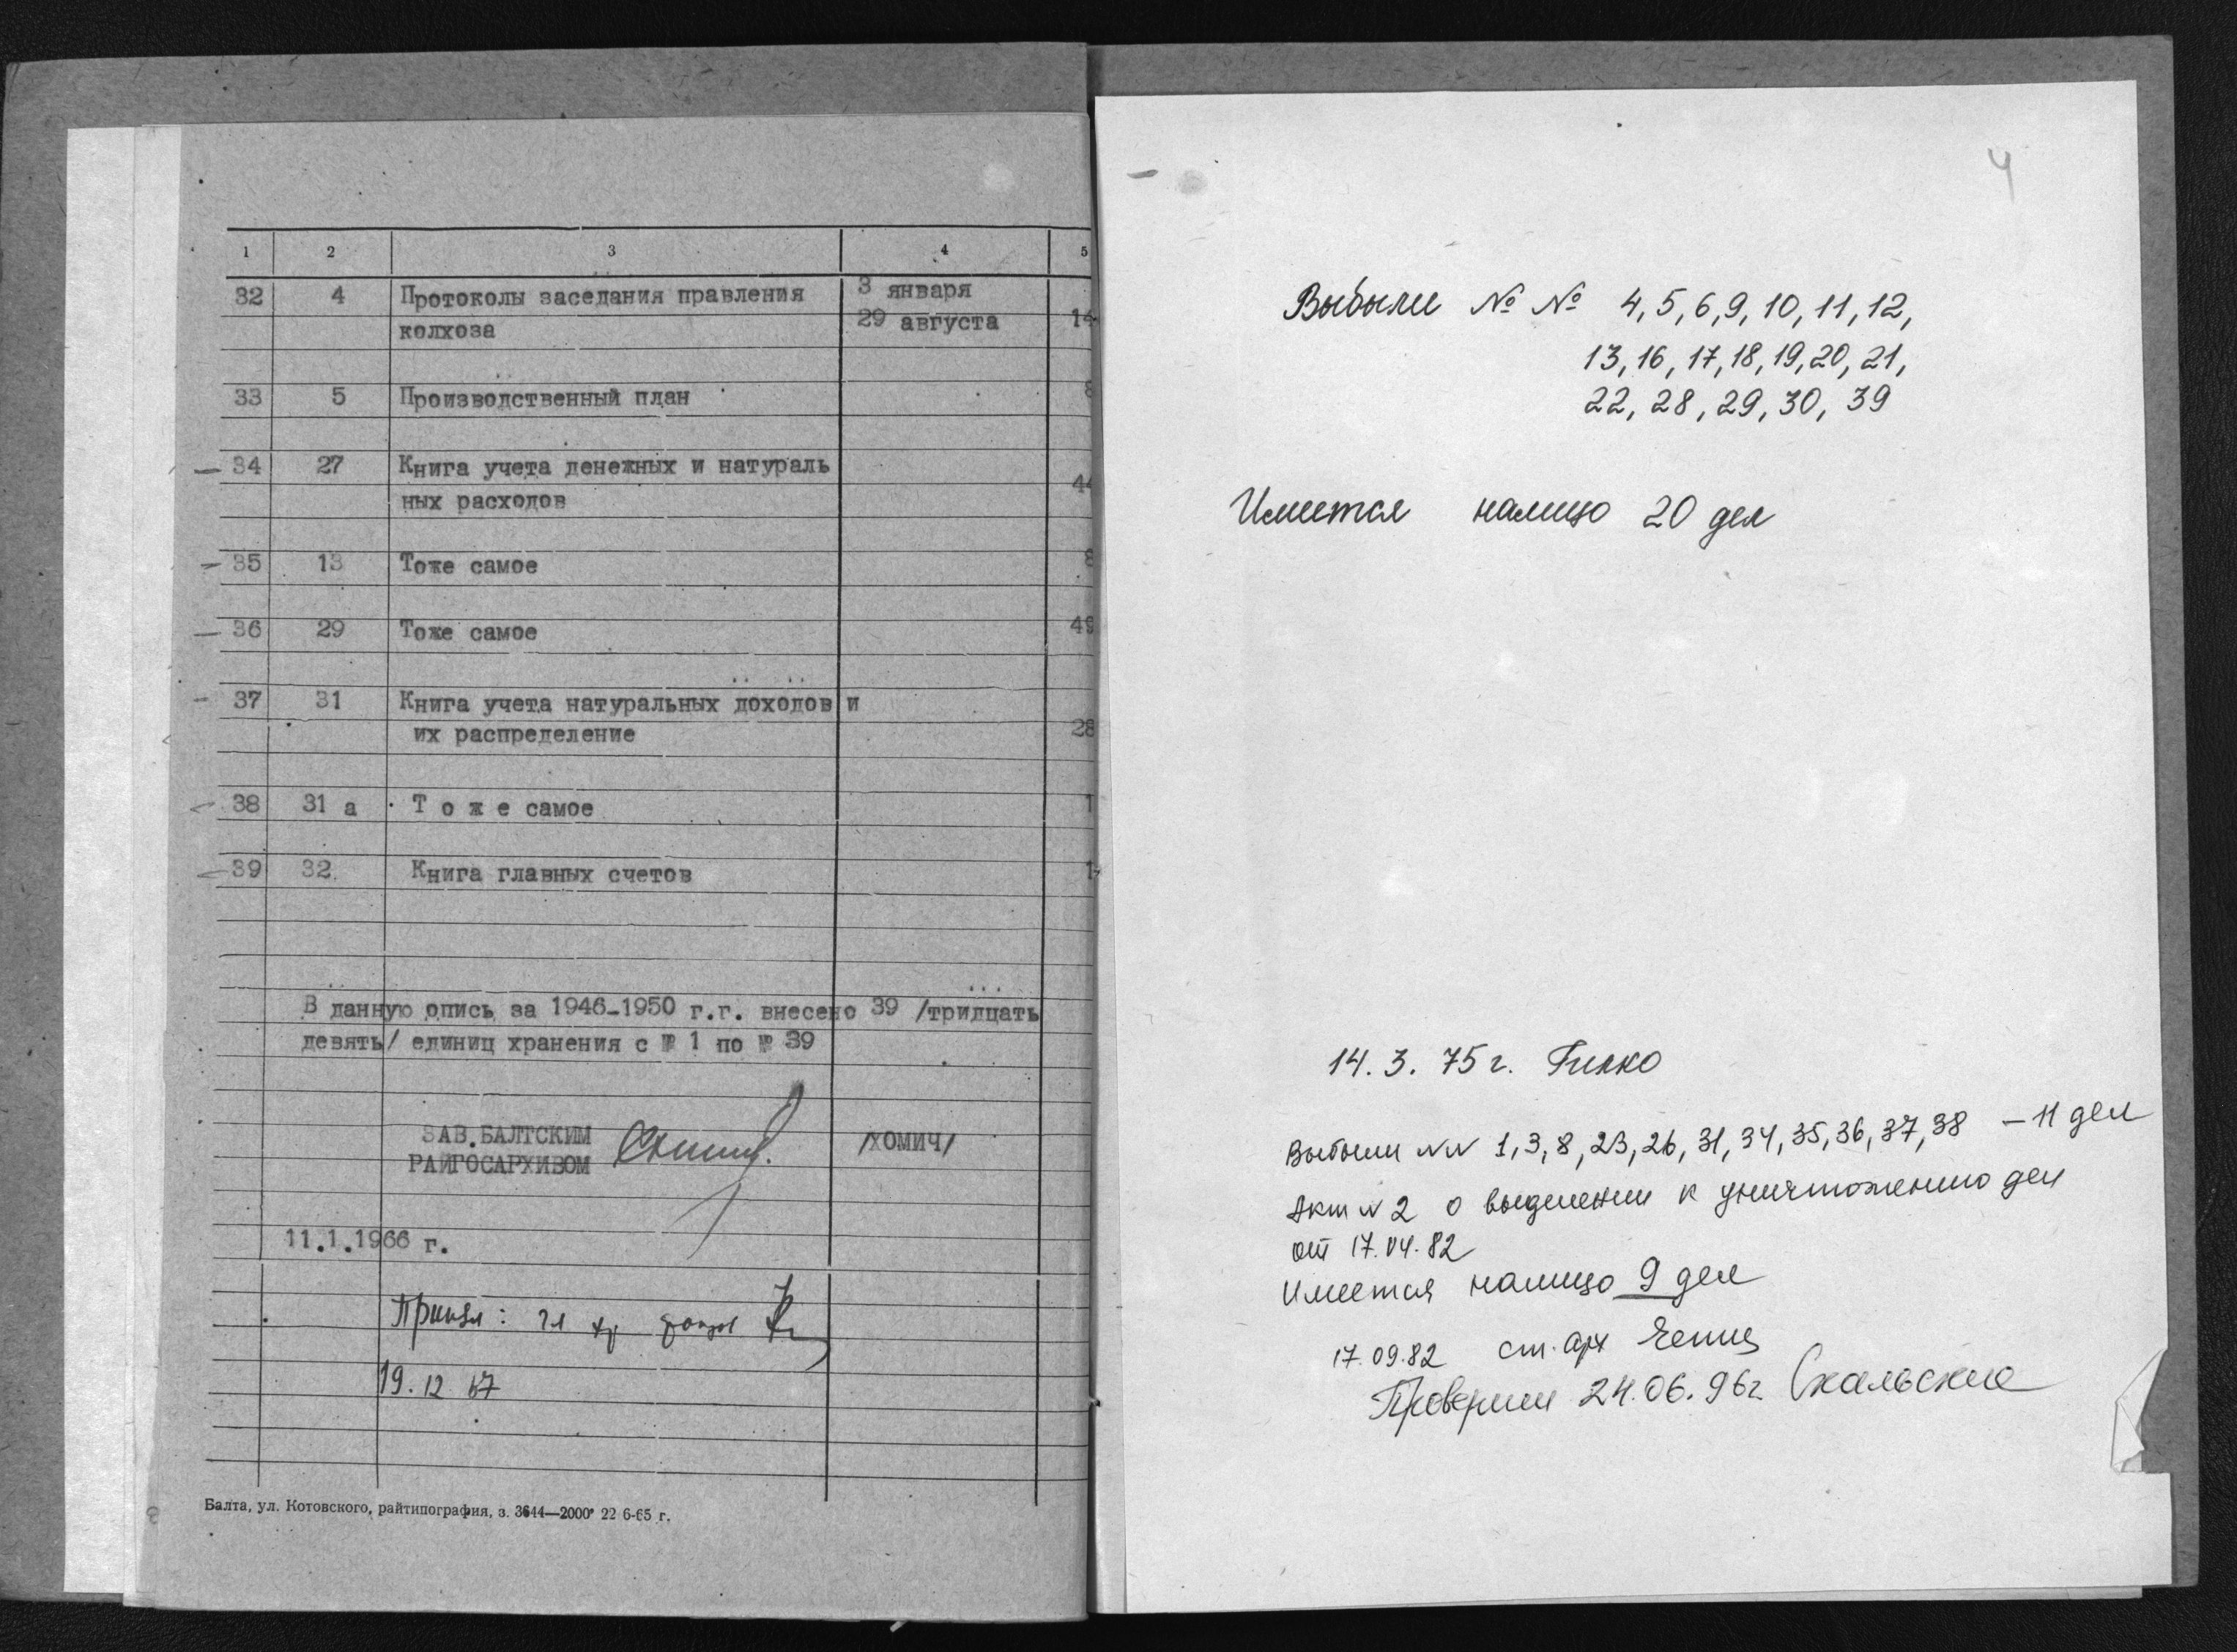 1 2 3 4 5
32 4 Протоколы заседания правления 3 января
колхоза 29 августа 14
33 5 Производственный план 8
34 27 Книга учета денежных и натураль
ных расходов 44
35 13 Тоже самое 8
36 29 Тоже самое 49
37 31 Книга учета натуральных доходов и
их распределение 28
38 31 а Т о ж е самое 1
39 32 Книга главных счетов 1
В данную опись за 1946-1950 г.г. внесено 39 /тридцать
девять/ единиц хранения с № 1 по № 39
ЗАВ.БАЛТСКИМ
РАЙГОСАРХИВОМ /ХОМИЧ/
11.1.1966 г.
Принял: гл хр фондов
19. 12 67
Балта, ул. Котовского, райтипография, з. 3644—2000 22 6-65 г.
4
Выбыли № № 4, 5, 6, 9, 10, 11, 12,
13, 16, 17, 18, 19, 20, 21,
22, 28, 29, 30, 39
Имеется налицо 20 дел
14. 3. 75 г.
Выбыли NN 1, 3, 8, 23, 26, 31, 34, 35, 36, 37, 38 – 11 дел
Акт N 2 о выделении к уничтожению дел
от 17.04.82
Имеется налицо 9 дел
17.09.82 ст. арх
Проверили 24.06.96г.